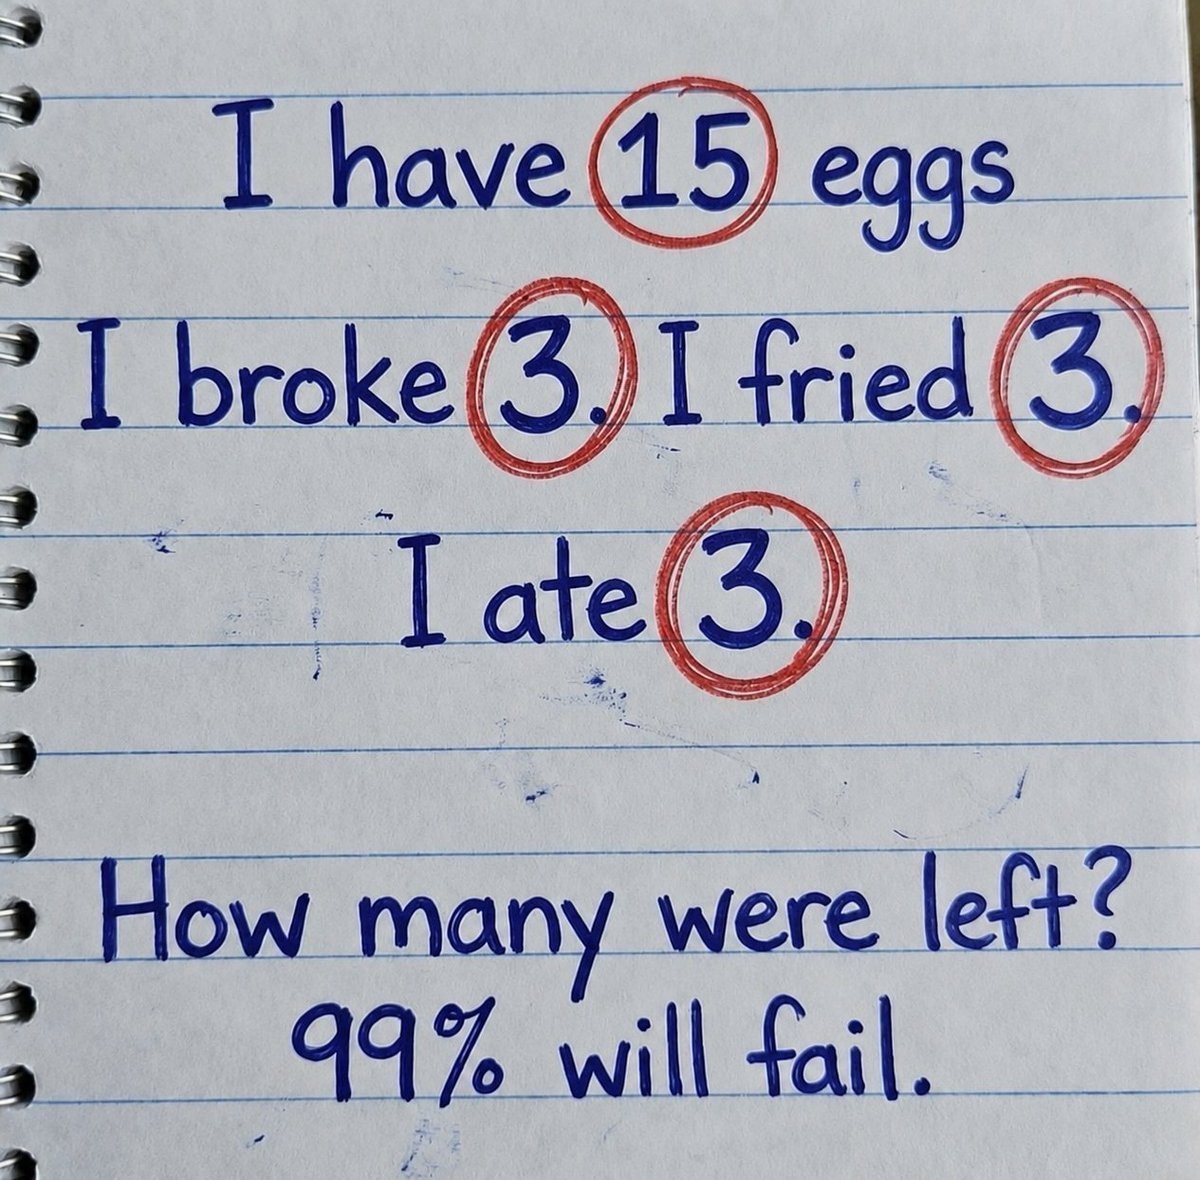 I have 15 eggs
I broke 3. I fried 3.
I ate 3.
How many were left?
99% will fail.